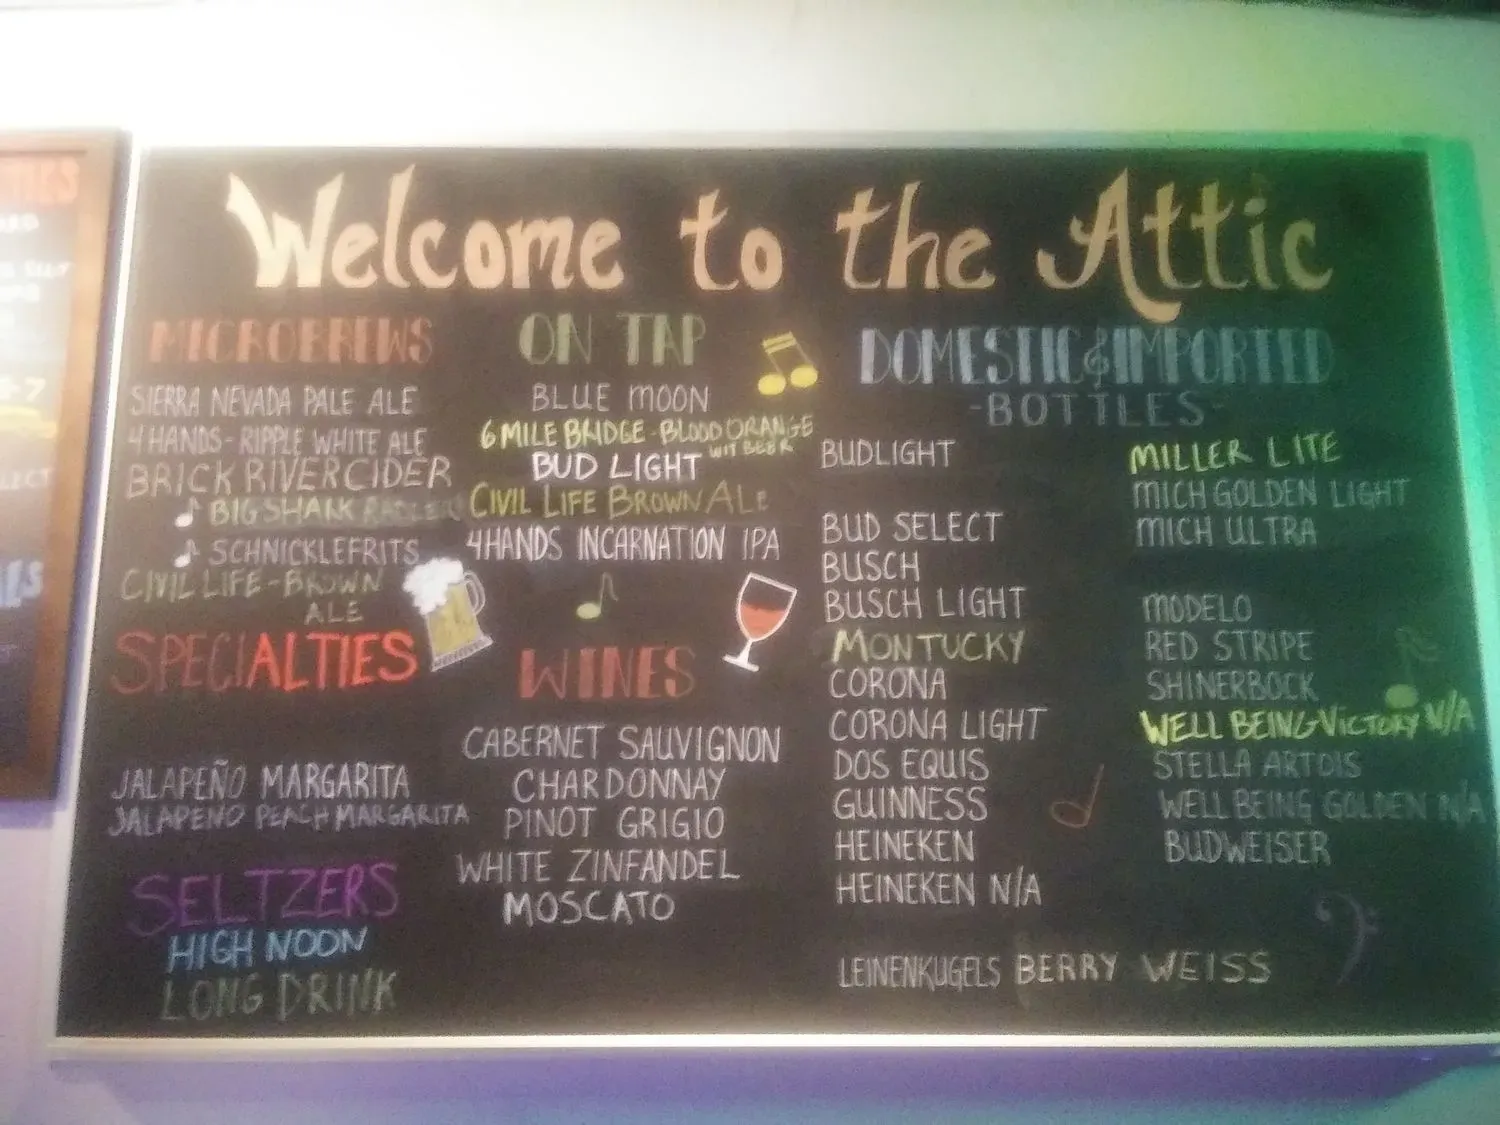 Welcome to the Attic
MICROBREWS
SIERRA NEVADA PALE ALE
4 HANDS - RIPPLE WHITE ALE
BRICK RIVER CIDER
BIG SHARK RADLER
SCHNICKLEFRITS
CIVIL LIFE - BROWN
ALE
SPECIALTIES
JALAPEÑO MARGARITA
JALAPENO PEACH MARGARITA
SELTZERS
HIGH NOON
LONG DRINK
ON TAP
BLUE MOON
6 MILE BRIDGE - BLOOD ORANGE
WIT BEER
BUD LIGHT
CIVIL LIFE BROWN ALE
4HANDS INCARNATION IPA
WINES
CABERNET SAUVIGNON
CHARDONNAY
PINOT GRIGIO
WHITE ZINFANDEL
MOSCATO
DOMESTIC & IMPORTED
-BOTTLES-
BUDLIGHT
BUD SELECT
BUSCH
BUSCH LIGHT
MONTUCKY
CORONA
CORONA LIGHT
DOS EQUIS
GUINNESS
HEINEKEN
HEINEKEN N/A
LEINENKUGELS BERRY WEISS
MILLER LITE
MICH GOLDEN LIGHT
MICH ULTRA
MODELO
RED STRIPE
SHINERBOCK
WELL BEING-VICTORY N/A
STELLA ARTOIS
WELL BEING GOLDEN N/A
BUDWEISER